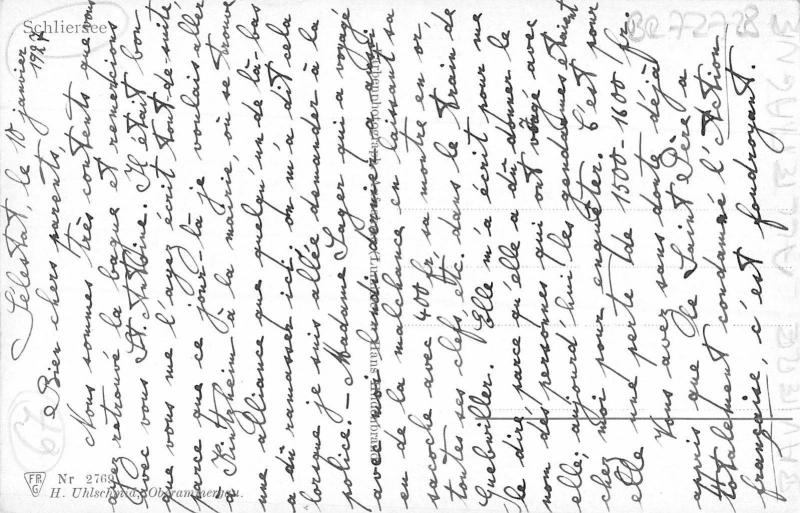 Schliersee
BR 72728
BAVIERE - ALLEMAGNE
29
Sélestat, le 18 janvier
1927
Bien chers parents,
Nous sommes très contents que vous
ayez retrouvé la bague et remercions
avec vous St. Antoine. Il était bon
que vous me l'ayez écrit tout-de-suite
parce que ce jour-là je voulais aller
à Kintzheim à la mairie, où se trouve
une alliance que quelqu'un de là-bas
a dû ramasser ici. on m'a dit cela
lorsque je suis allée demander à la
police. – Madame Sager qui a voyagé
avec moi lundi dernier
en de la malchance en laissant sa
sacoche avec 400 fr, sa montre en or,
toutes ses clefs etc. dans le train de
Guebwiller. Elle m'a écrit pour me
le dire, parce qu'elle a dû donner le
nom des personnes qui ont voyagé avec
elle; aujourd'hui les gendarmes étaient
chez moi pour enquêter. C'est pour
elle une perte de 1500-1600 fr.
Vous avez sans doute déjà
appris que le Saint Père a
totalement condamné l'Action
française, c'est foudroyant.
FRG
Nr 2769
H. Uhlschmid, Oberammergau.